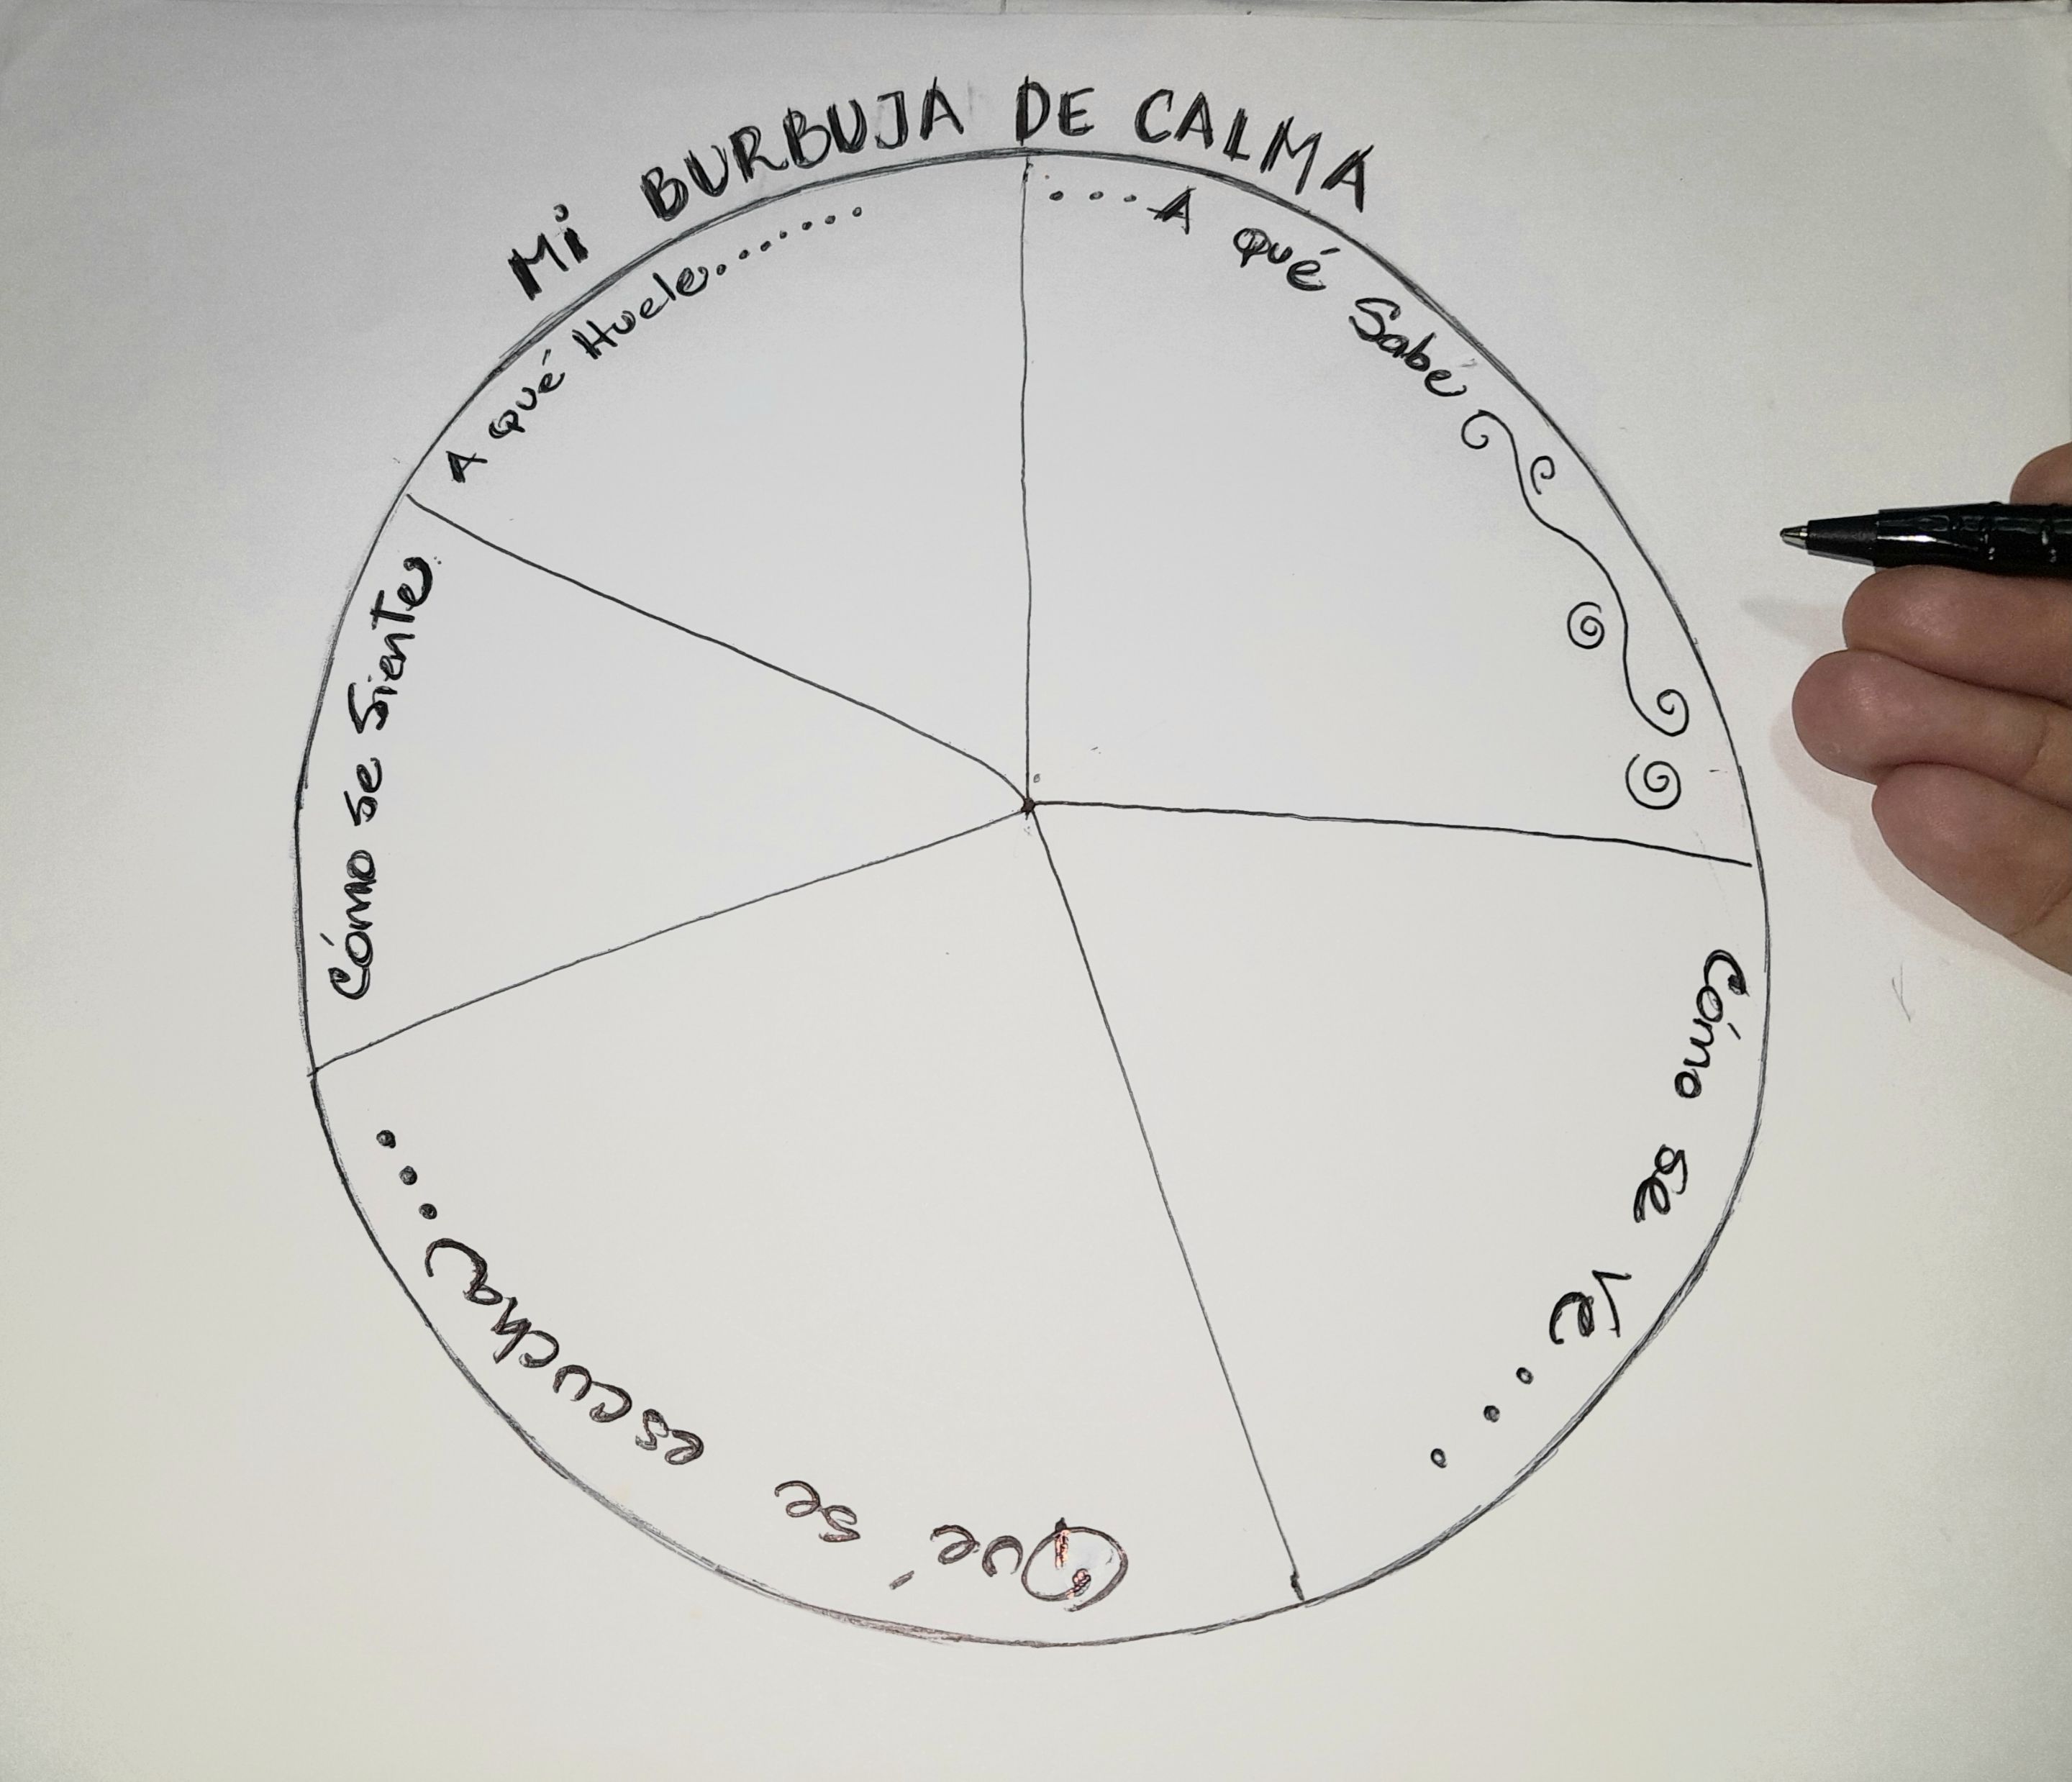 Mi BURBUJA DE CALMA
A qué Huele.......
...A qué Sabé
Cómo se Ve...
Qué se escucha...
Cómo se Siente